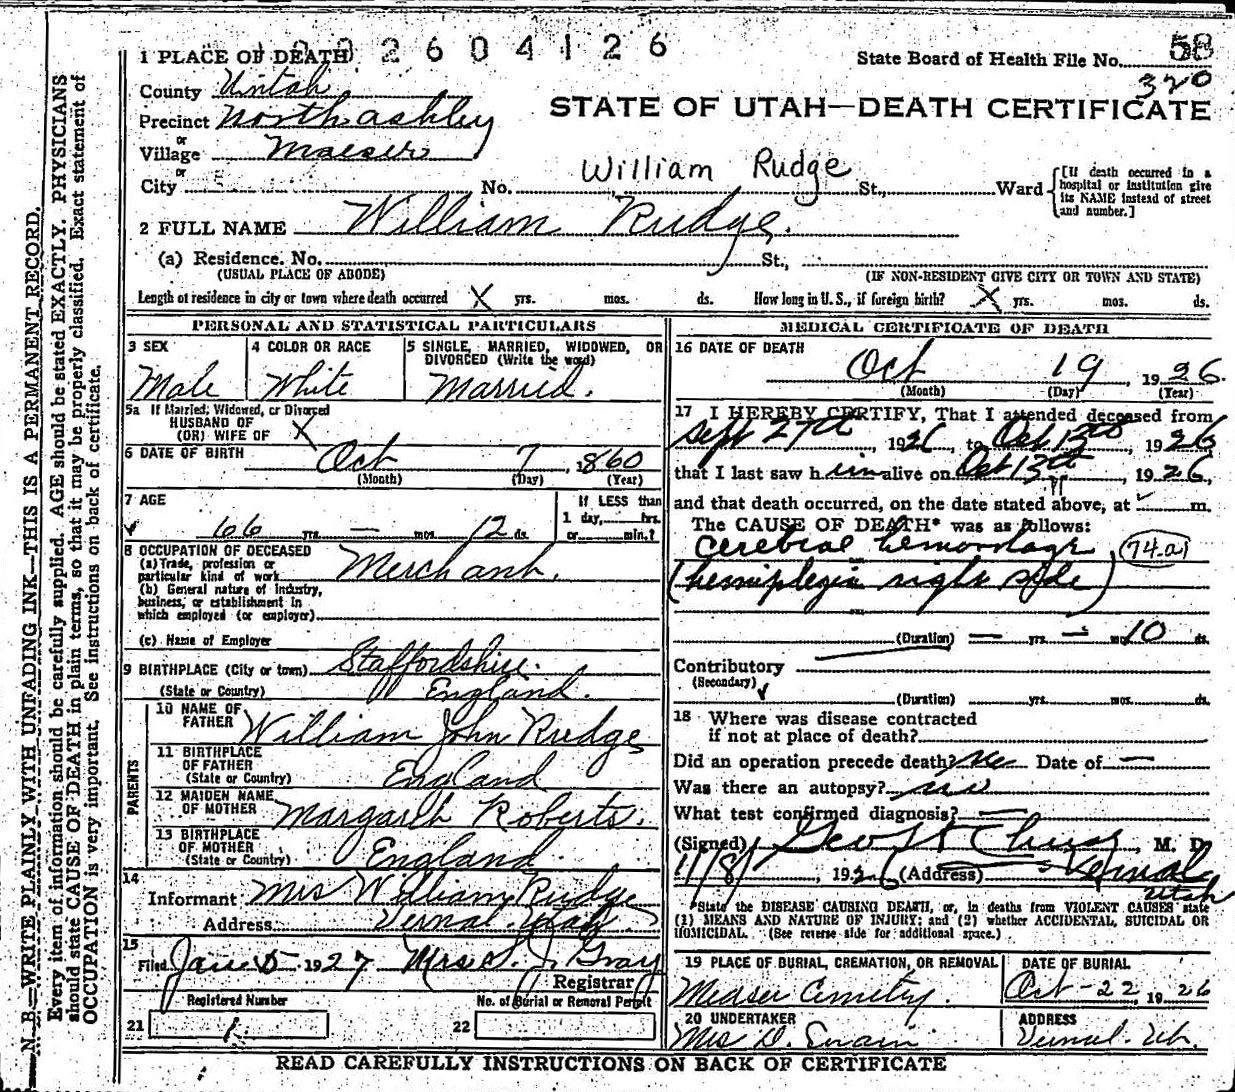 2604126
1 PLACE OF DEATH
State Board of Health File No. 58
320
County Uintah
STATE OF UTAH—DEATH CERTIFICATE
Precinct North Ashley
or
Village Maeser
or
City No. St., Ward
William Rudge
[If death occurred in a hospital or institution give its NAME instead of street and number.]
2 FULL NAME William Rudge.
(a) Residence. No. St.,
(USUAL PLACE OF ABODE) (IF NON-RESIDENT GIVE CITY OR TOWN AND STATE)
Length of residence in city or town where death occurred X yrs. mos. ds. How long in U. S., if foreign birth? X yrs. mos. ds.
PERSONAL AND STATISTICAL PARTICULARS
3 SEX
Male
4 COLOR OR RACE
White
5 SINGLE, MARRIED, WIDOWED, OR DIVORCED (Write the word)
Married.
5a If Married, Widowed, or Divorced
HUSBAND OF
(OR) WIFE OF X
6 DATE OF BIRTH Oct 7, 1860
(Month) (Day) (Year)
7 AGE
66 yrs. — mos. 12 ds.
If LESS than
1 day, hrs.
or min.?
8 OCCUPATION OF DECEASED
(a) Trade, profession or
particular kind of work Merchant.
(b) General nature of industry,
business, or establishment in
which employed (or employer)
(c) Name of Employer
9 BIRTHPLACE (City or town) Staffordshire.
(State or Country) England.
PARENTS
10 NAME OF
FATHER William John Rudge
11 BIRTHPLACE
OF FATHER
(State or Country) England
12 MAIDEN NAME
OF MOTHER Margaret Roberts.
13 BIRTHPLACE
OF MOTHER
(State or Country) England.
14
Informant Mrs William Rudge
Address Vernal Utah.
15
Filed Jan 5 1927 Mrs S. J. Gray
Registrar
Registered Number No. of Burial or Removal Permit
21 1. 22
MEDICAL CERTIFICATE OF DEATH
16 DATE OF DEATH
Oct 19, 1926.
(Month) (Day) (Year)
17 I HEREBY CERTIFY, That I attended deceased from
Sept 27th, 1926 to Oct 13th, 1926
that I last saw him alive on Oct 13th, 1926,
and that death occurred, on the date stated above, at m.
The CAUSE OF DEATH* was as follows:
Cerebral hemorrhage 74.a
(hemiplegia right side)
(Duration) — yrs. — mos. 10 ds.
Contributory
(Secondary)
(Duration) yrs. mos. ds.
18 Where was disease contracted
if not at place of death?
Did an operation precede death? No Date of —
Was there an autopsy? no
What test confirmed diagnosis? —
(Signed) Geo M. D.
11/8/, 1926 (Address) Vernal
Utah
*State the DISEASE CAUSING DEATH, or, in deaths from VIOLENT CAUSES state
(1) MEANS AND NATURE OF INJURY; and (2) whether ACCIDENTAL, SUICIDAL OR
HOMICIDAL. (See reverse side for additional space.)
19 PLACE OF BURIAL, CREMATION, OR REMOVAL
Maeser Cemetery.
DATE OF BURIAL
Oct - 22, 1926
20 UNDERTAKER
Mrs D. Swain
ADDRESS
Vernal. Ut.
READ CAREFULLY INSTRUCTIONS ON BACK OF CERTIFICATE
N. B.—WRITE PLAINLY WITH UNFADING INK—THIS IS A PERMANENT RECORD.
Every item of information should be carefully supplied. AGE should be stated EXACTLY. PHYSICIANS
should state CAUSE OF DEATH in plain terms, so that it may be properly classified. Exact statement of
OCCUPATION is very important. See instructions on back of certificate.